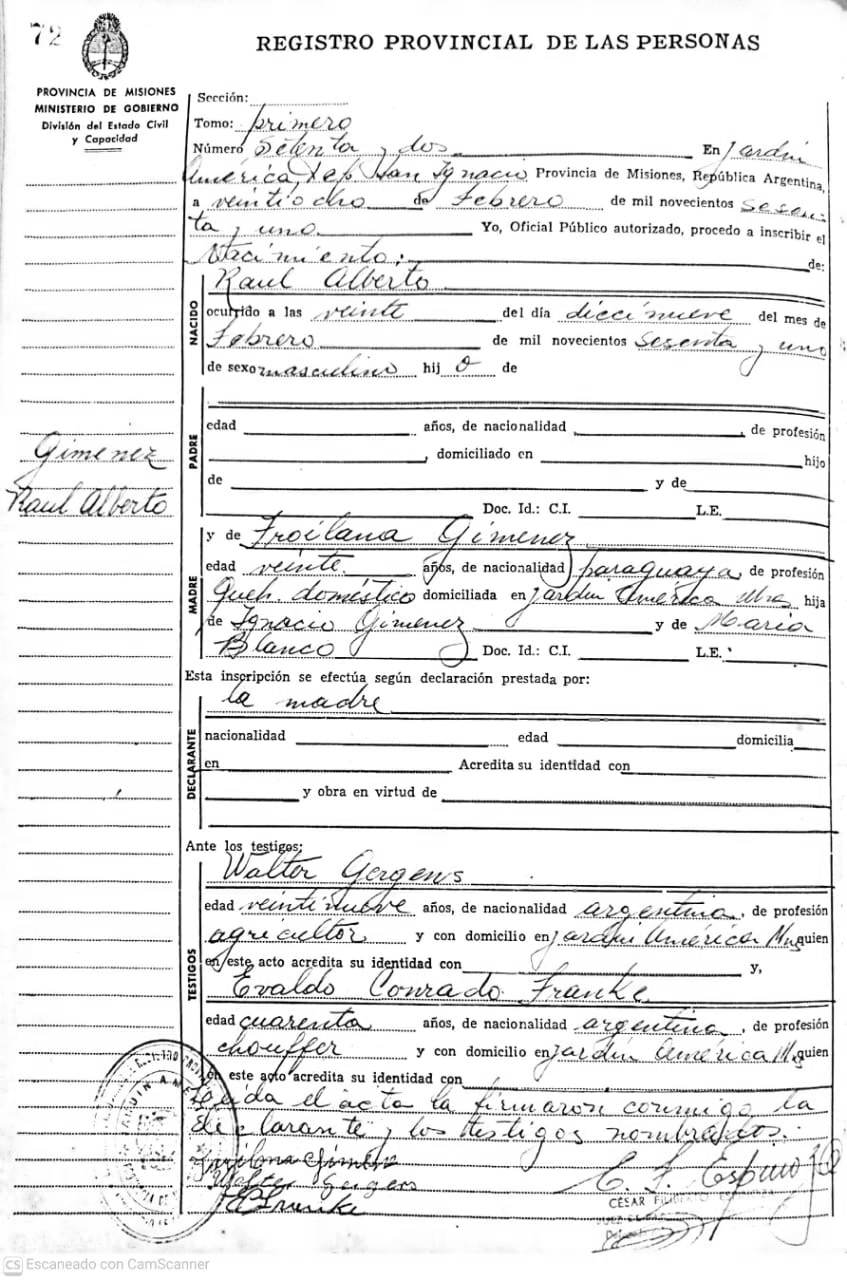 72
REGISTRO PROVINCIAL DE LAS PERSONAS
PROVINCIA DE MISIONES
MINISTERIO DE GOBIERNO
División del Estado Civil
y Capacidad
Sección:
Tomo: primero
Número setenta y dos En Jardín
América, Dep. San Ignacio Provincia de Misiones, República Argentina,
a veintiocho de Febrero de mil novecientos sesen-
ta y uno Yo, Oficial Público autorizado, procedo a inscribir el
Nacimiento: de:
NACIDO
Raul Alberto
ocurrido a las veinte del día diecinueve del mes de
Febrero de mil novecientos sesenta y uno
de sexo masculino hij o de
Gimenez
Raul Alberto
PADRE
edad años, de nacionalidad , de profesión
, domiciliado en hijo
de y de
Doc. Id.: C.I. L.E.
MADRE
y de Froilana Gimenez
edad veinte años, de nacionalidad paraguaya, de profesión
Queh. doméstico domiciliada en Jardín América Mns hija
de Ignacio Gimenez y de María
Blanco Doc. Id.: C.I. L.E.
Esta inscripción se efectúa según declaración prestada por:
la madre
DECLARANTE
nacionalidad edad domicilia
en Acredita su identidad con
y obra en virtud de
Ante los testigos:
TESTIGOS
Walter Gergens
edad veintinueve años, de nacionalidad argentina, de profesión
agricultor y con domicilio en Jardín América Mns quien
en este acto acredita su identidad con y,
Evaldo Conrado Franke
edad cuarenta años, de nacionalidad argentina, de profesión
chouffer y con domicilio en Jardín América M. quien
en este acto acredita su identidad con
Leída el acta la firmaron conmigo la
declarante y los testigos nombrados.
Froilana Gimenez
Walter Gergens
E C Franke
C. F. Espinoza
CESAR
JUEZ DE PAZ
CS Escaneado con CamScanner